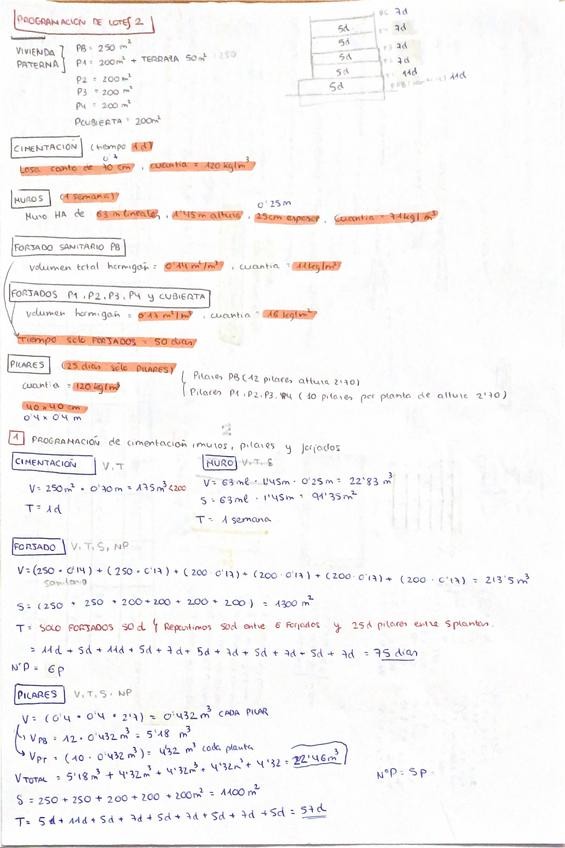 PROGRAMACIÓN DE LOTES 2
VIVIENDA PATERNA
PB = 250 m²
P1 = 200m² + TERRAZA 50m²
P2 = 200m²
P3 = 200m²
P4 = 200m²
PCUBIERTA = 200m²
7d
5d 7d
5d 7d
5d 7d
5d 11d
5d 11d
CIMENTACIÓN (tiempo 1d)
0'7
Losa canto de 70 cm, cuantía = 120 kg/m³
MUROS (1 semana)
0'25m
Muro HA de 63 m lineales, 1'45m altura, 25cm espesor, cuantía = 71kg/m³
FORJADO SANITARIO PB
volumen total hormigón = 0'14 m³/m², cuantía = 11kg/m²
FORJADOS P1, P2, P3, P4 y CUBIERTA
volumen hormigón = 0'17 m³/m², cuantía = 16 kg/m²
Tiempo solo FORJADOS = 50 días
PILARES (25 días solo PILARES)
cuantía = 120 kg/m³
Pilares PB (12 pilares altura 2'70)
Pilares P1, P2, P3, P4 (10 pilares por planta de altura 2'70)
40 x 40 cm
0'4 x 0'4 m
1 PROGRAMACIÓN de cimentación, muros, pilares y forjados
CIMENTACIÓN V.T
V = 250m² · 0'70m = 175m³ < 200
T = 1d
MURO V.T.S
V = 63 ml · 1'45m · 0'25m = 22'83 m³
S = 63 ml · 1'45m = 91'35m²
T = 1 semana
FORJADO V.T.S, NP
V = (250 · 0'14) + (250 · 0'17) + (200 · 0'17) + (200 · 0'17) + (200 · 0'17) + (200 · 0'17) = 213'5 m³
sanitario
S = (250 + 250 + 200 + 200 + 200 + 200) = 1300 m²
T = SOLO FORJADOS 50 d y Repartimos 50d entre 6 forjados y 25d pilares entre 5 plantas.
= 11d + 5d + 11d + 5d + 7d + 5d + 7d + 5d + 7d + 5d + 7d = 75 días
NºP = 6p
PILARES V.T.S. NP
V = (0'4 · 0'4 · 2'7) = 0'432 m³ CADA PILAR
VPB = 12 · 0'432 m³ = 5'18 m³
VPT = (10 · 0'432 m³) = 4'32 m³ cada planta
VTOTAL = 5'18m³ + 4'32m³ + 4'32m³ + 4'32m³ + 4'32 = 22'46m³
NºP = 5p
S = 250 + 250 + 200 + 200 + 200m² = 1100 m²
T = 5d + 11d + 5d + 7d + 5d + 7d + 5d + 7d + 5d = 57d